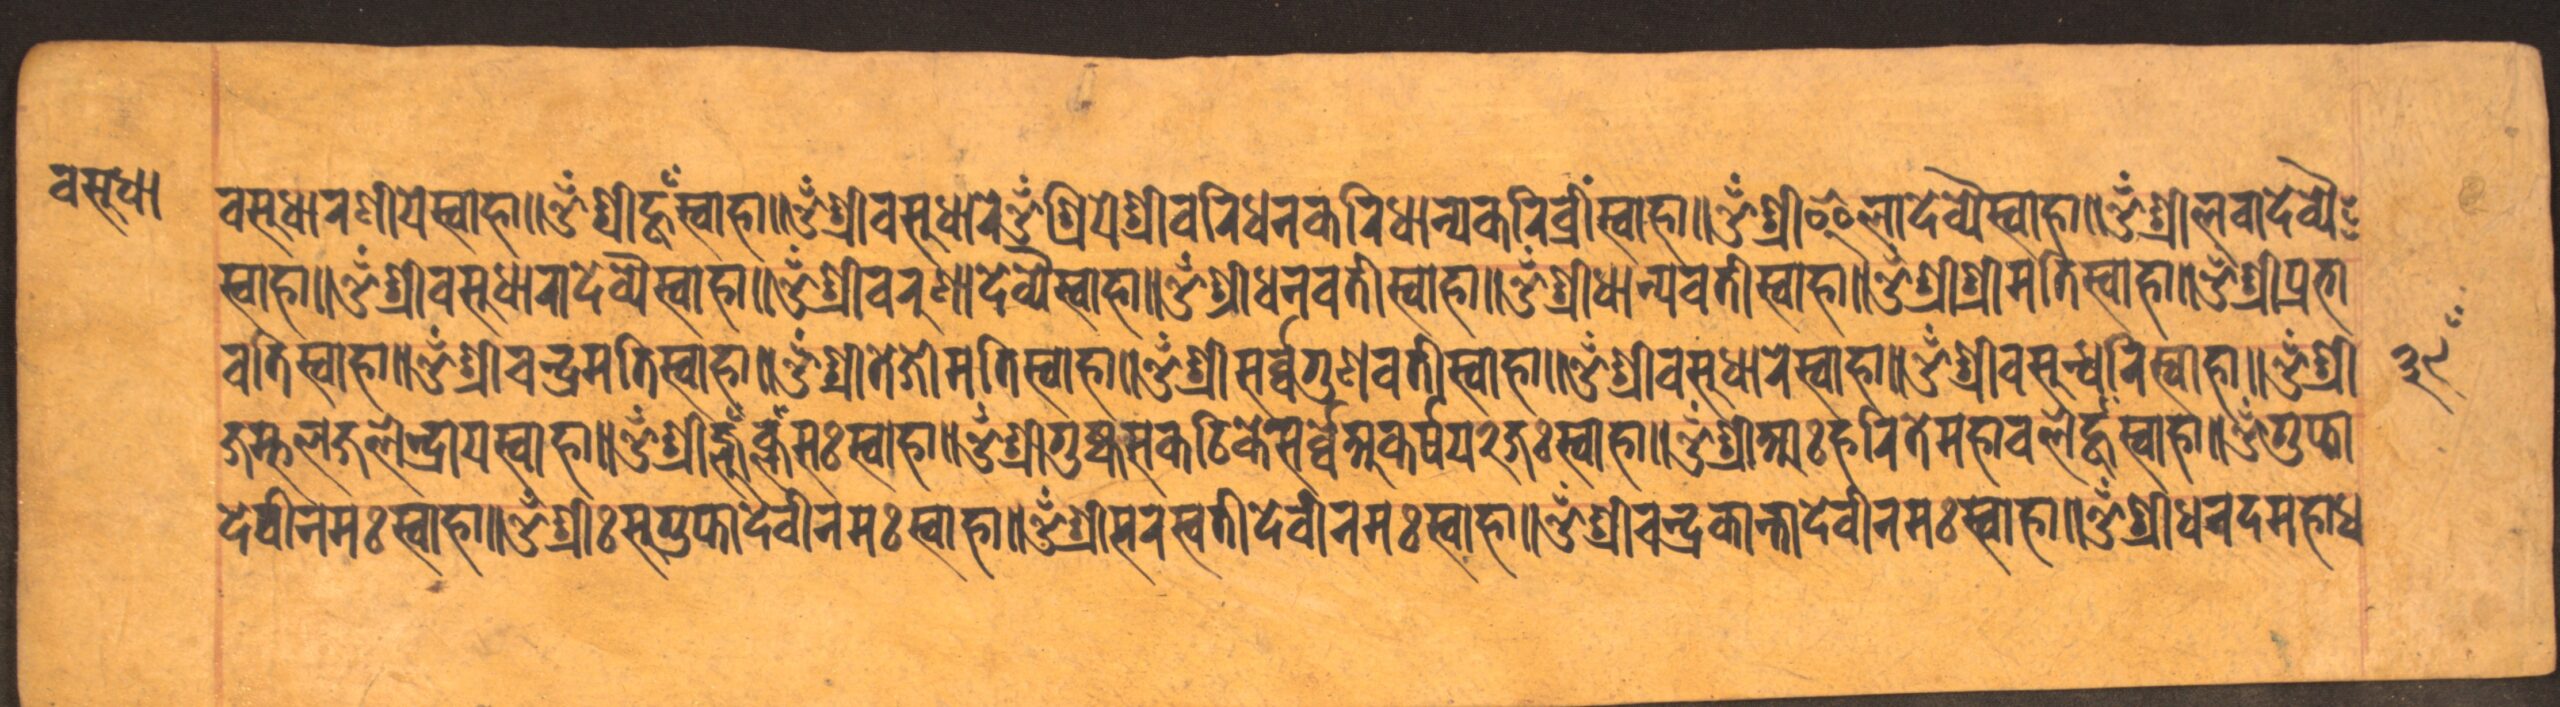 वसुधा
वसुधारणीये स्वाहा॥ ॐ श्री हूँ स्वाहा॥ ॐ श्री वसुधारे ॐ श्रिये श्रीवरि धनकरि धान्यकरि व्रीं स्वाहा॥ ॐ श्री लादेव्यै स्वाहा॥ ॐ श्री लवादेव्यै
स्वाहा॥ ॐ श्री वसुधारादेव्यै स्वाहा॥ ॐ श्री वरुणादेव्यै स्वाहा॥ ॐ श्री धनवती स्वाहा॥ ॐ श्री धान्यवती स्वाहा॥ ॐ श्री श्रीमति स्वाहा॥ ॐ श्री प्रभा
वति स्वाहा॥ ॐ श्री चन्द्रमति स्वाहा॥ ॐ श्री तेजोमति स्वाहा॥ ॐ श्री सर्व्वगुणवती स्वाहा॥ ॐ श्री वसुधारे स्वाहा॥ ॐ श्री वसुन्धरि स्वाहा॥ ॐ श्री
जम्भलजलेन्द्राय स्वाहा॥ ॐ श्री सः स्वाहा॥ ॐ श्री सर्व्व स्वाहा॥ ॐ श्री हरिते महावले हूँ स्वाहा॥ ॐ गुप्ता
देवी नमः स्वाहा॥ ॐ श्रीः सुगुप्तादेवी नमः स्वाहा॥ ॐ श्री सरस्वतीदेवी नमः स्वाहा॥ ॐ श्री चन्द्रकान्तादेवी नमः स्वाहा॥ ॐ श्री धनदमहाध
३९